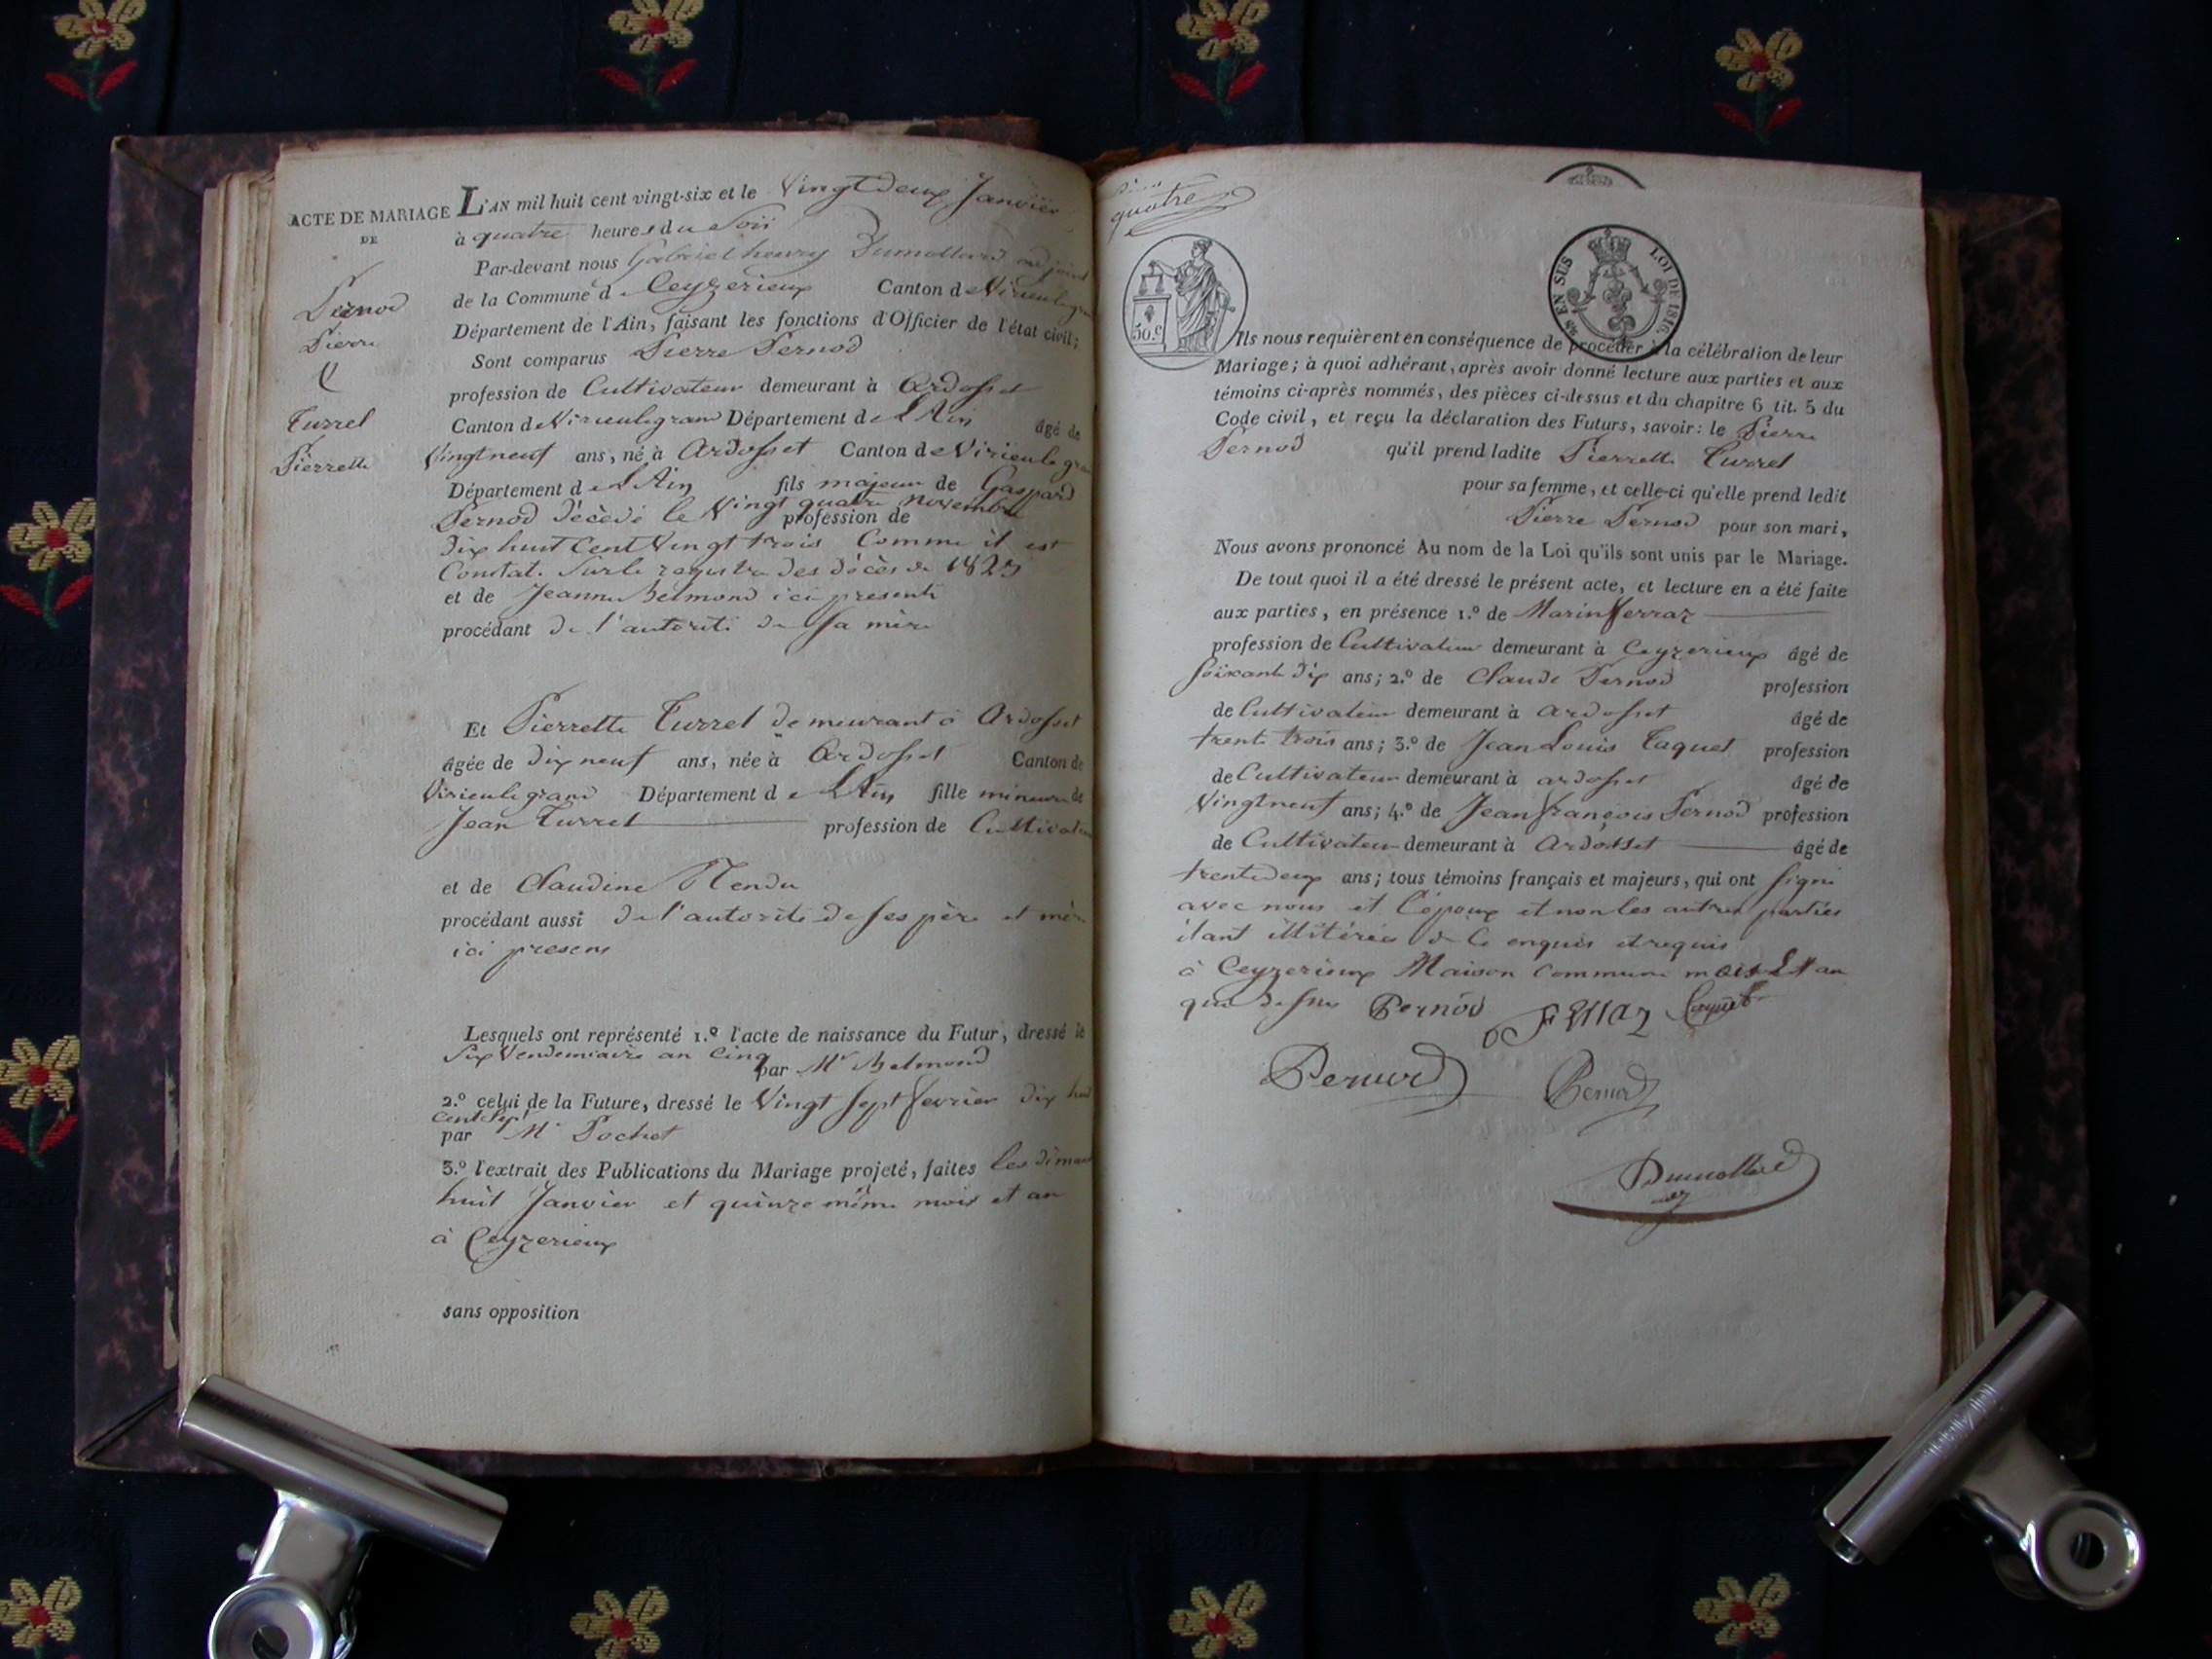 ACTE DE MARIAGE
DE
Pernod
Pierre
&
Turrel
Pierrette
L'AN mil huit cent vingt-six et le Vingt deux Janvier
à quatre heures du Soir
Par-devant nous Gabriel henry Dumollard adjoint
de la Commune de Ceyzerieux Canton de Virieulegrand
Département de l'Ain, faisant les fonctions d'Officier de l'état civil;
Sont comparus Pierre Pernod
profession de Cultivateur demeurant à Ardosset
Canton de Virieulegrand Département de L'Ain âgé de
Vingtneuf ans, né à Ardosset Canton de Virieulegrand
Département de L'Ain fils majeur de Gaspard
Pernod décédé le Vingt quatre novembre
profession de
dix huit Cent Vingt trois Comme il est
Constat. Sur le registre des décès de 1823
et de Jeanne Belmond ici presente
procédant de l'autorité de sa mère
Et Pierrette Turrel demeurant à Ardosset
âgée de dix neuf ans, née à Ardosset Canton de
Virieulegrand Département de L'Ain fille mineure de
Jean Turrel profession de Cultivateur
et de Claudine
procédant aussi de l'autorité de ses père et mère
ici presens
Lesquels ont représenté 1.º l'acte de naissance du Futur, dressé le
Six Vendemiaire an Cinq par Mr Belmond
2.º celui de la Future, dressé le Vingt sept fevrier dix huit
Cent Sept
par Mr Pochet
3.º l'extrait des Publications du Mariage projeté, faites les diman
huit Janvier et quinze même mois et an
à Ceyzerieux
sans opposition
quatre
50.c
EN SUS LOI DE 1816.
Ils nous requièrent en conséquence de procéder à la célébration de leur
Mariage; à quoi adhérant, après avoir donné lecture aux parties et aux
témoins ci-après nommés, des pièces ci-dessus et du chapitre 6 tit. 5 du
Code civil, et reçu la déclaration des Futurs, savoir: le Pierre
Pernod qu'il prend ladite Pierrette Turrel
pour sa femme, et celle-ci qu'elle prend ledit
Pierre Pernod pour son mari,
Nous avons prononcé Au nom de la Loi qu'ils sont unis par le Mariage.
De tout quoi il a été dressé le présent acte, et lecture en a été faite
aux parties, en présence 1.º de Marin ferraz
profession de Cultivateur demeurant à Ceyzerieux âgé de
soixante dix ans; 2.º de Claude Pernod profession
de Cultivateur demeurant à ardosset âgé de
trente trois ans; 3.º de Jean Louis Taquet profession
de Cultivateur demeurant à ardosset âgé de
Vingtneuf ans; 4.º de Jean françois Pernod profession
de Cultivateur demeurant à Ardosset âgé de
trentedeux ans; tous témoins français et majeurs, qui ont signé
avec nous et l'époux et non les autres parties
étant illitérées de ce enquis et requis
à Ceyzerieux Maison Commune mois et an
que dessus Pernod
Pernod Pernod
Dumollard
adj